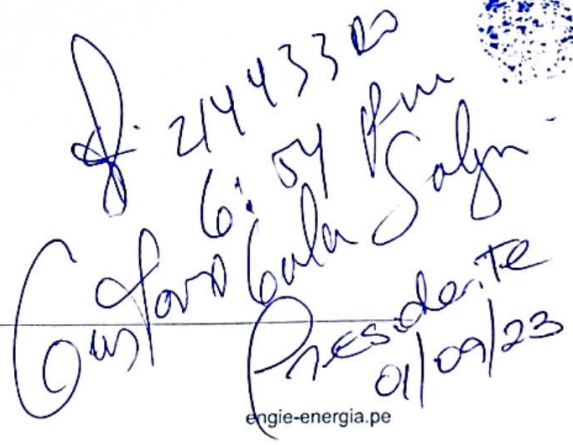 21443320
6:04 pm
Gustavo
Presidente
01/09/23
engie-energia.pe